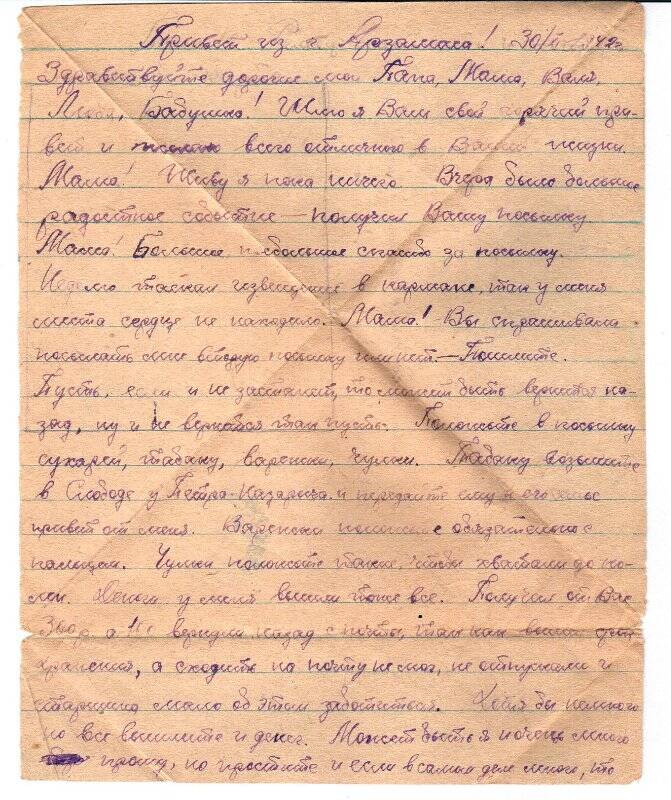 Привет из г. Арзамаса! 30/ 1942г
Здравствуйте дорогие мои Папа, Мама, Валя,
Люба, Бабушка! Шлю я Вам свой горячий при-
вет и желаю всего отличного в Вашей жизни.
Мама! Живу я пока ничего. Вчера было большое
радостное событие — получил Вашу посылку.
Мама! Большое пребольшое спасибо за посылку.
Неделю таскал извещение в кармане, так у меня
места сердце не находило. Мама! Вы спрашивали
посылать мне вторую посылку или нет. — Пошлите.
Пусть, если и не застанет, то может быть вернется на-
зад, ну и не вернется так пусть. Положьте в посылку
сухарей, табаку, варежки, чулки. Табаку возьмите
в Слободе у Петра Назарыча и передайте ему и его
привет от меня. Варежки положьте обязательно с
пальцам. Чулки положьте такие, чтобы хватали до ко-
лен. Деньги у меня вышли тоже все. Получил от Вас
300 р, а вернули назад с почты, так как вышли
хранения, а сходить на почту не мог, не отпускали и
старшина мало об этом заботиться. Хотя бы немного
но все вышлите и денег. Может быть я и очень много
прошу, но простите и если в самом деле много, то